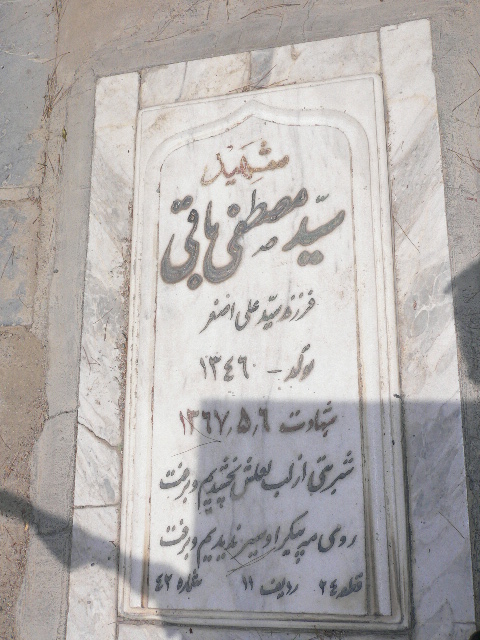 شهید
سید مصطفی باقی
فرزند سید علی اصغر
تولد - ۱۳٤٦
شهادت ۱۳٦۷٫۵٫٦
شربتی از لب لعلش نچشیدیم و برفت
روی مه پیکر او سیر ندیدیم و برفت
قطعه ۲٤ ردیف ۱۱ شماره ٤۲